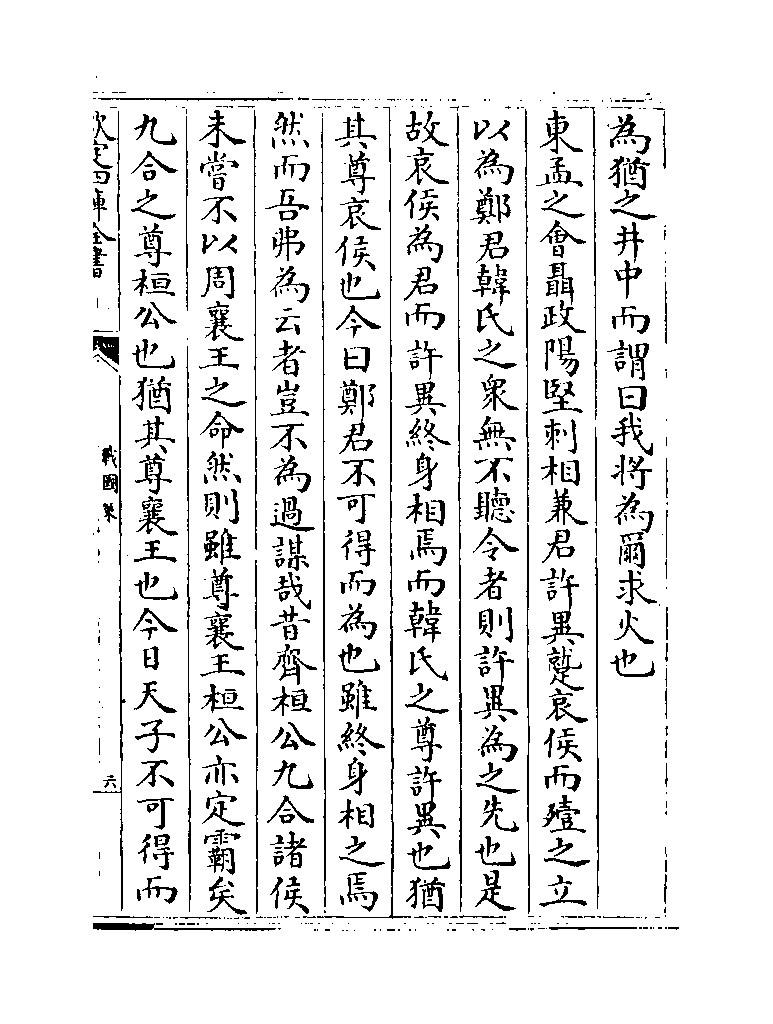 為猶之井中而謂曰我将為爾求火也
東孟之會聶政陽堅刺相兼君許異蹵哀侯而殪之立
以為鄭君韓氏之衆無不聽令者則許異為之先也是
故哀侯為君而許異終身相焉而韓氏之尊許異也猶
其尊哀侯也今曰鄭君不可得而為也雖終身相之焉
然而吾弗為云者豈不為過謀哉昔齊桓公九合諸侯
未嘗不以周襄王之命然則雖尊襄王桓公亦定霸矣
九合之尊桓公也猶其尊襄王也今日天子不可得而
欽定四庫全書
戰國策
六